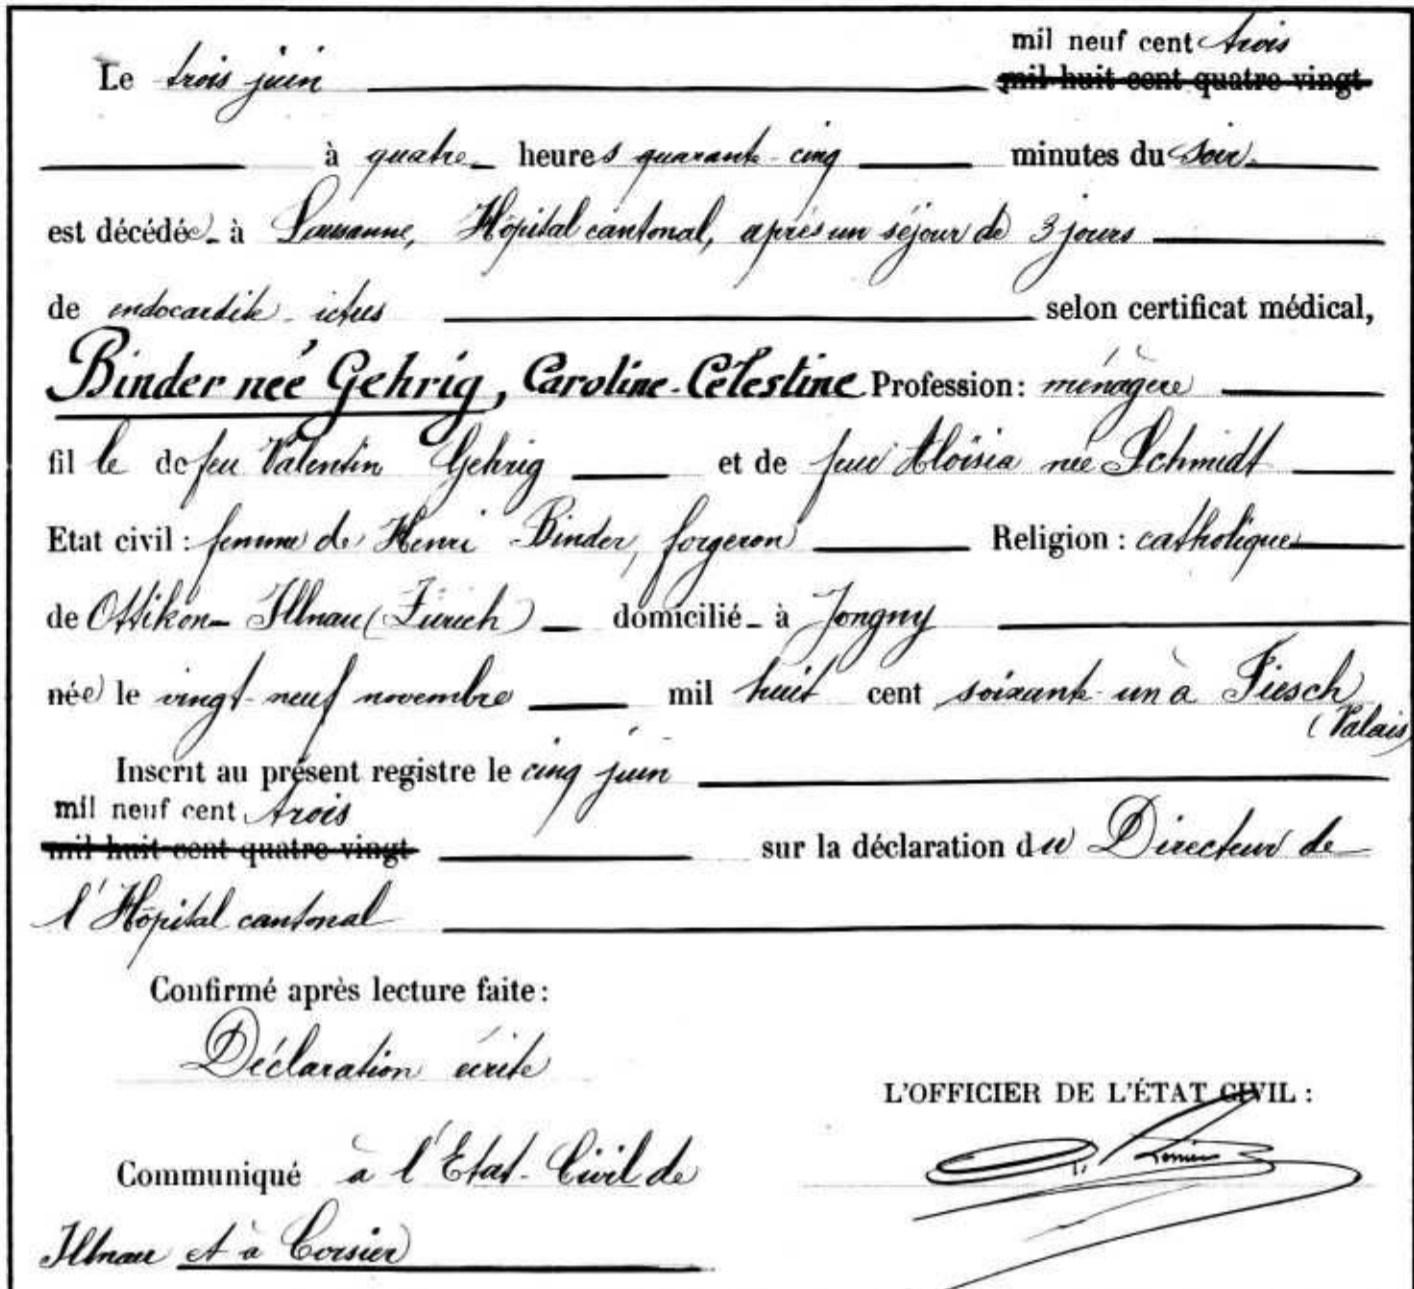 mil neuf cent trois
Le trois juin mil huit cent quatre-vingt
à quatre heures quarante-cinq minutes du soir
est décédée à Lausanne, Hôpital cantonal, après un séjour de 3 jours
de endocardite ictus selon certificat médical,
Binder née Gehrig, Caroline-Célestine Profession: ménagère
fille de feu Valentin Gehrig et de feue Aloïsia née Schmidt
Etat civil: femme de Henri Binder, forgeron Religion: catholique
de Ottikon-Illnau (Zurich) domicilié à Jongny
née le vingt-neuf novembre mil huit cent soixante-un à Fiesch
(Valais)
Inscrit au présent registre le cinq juin
mil neuf cent trois
mil huit cent quatre-vingt sur la déclaration du Directeur de
l'Hôpital cantonal
Confirmé après lecture faite:
Déclaration écrite
L'OFFICIER DE L'ÉTAT CIVIL:
Communiqué à l'Etat-Civil de
Illnau et à Corsier